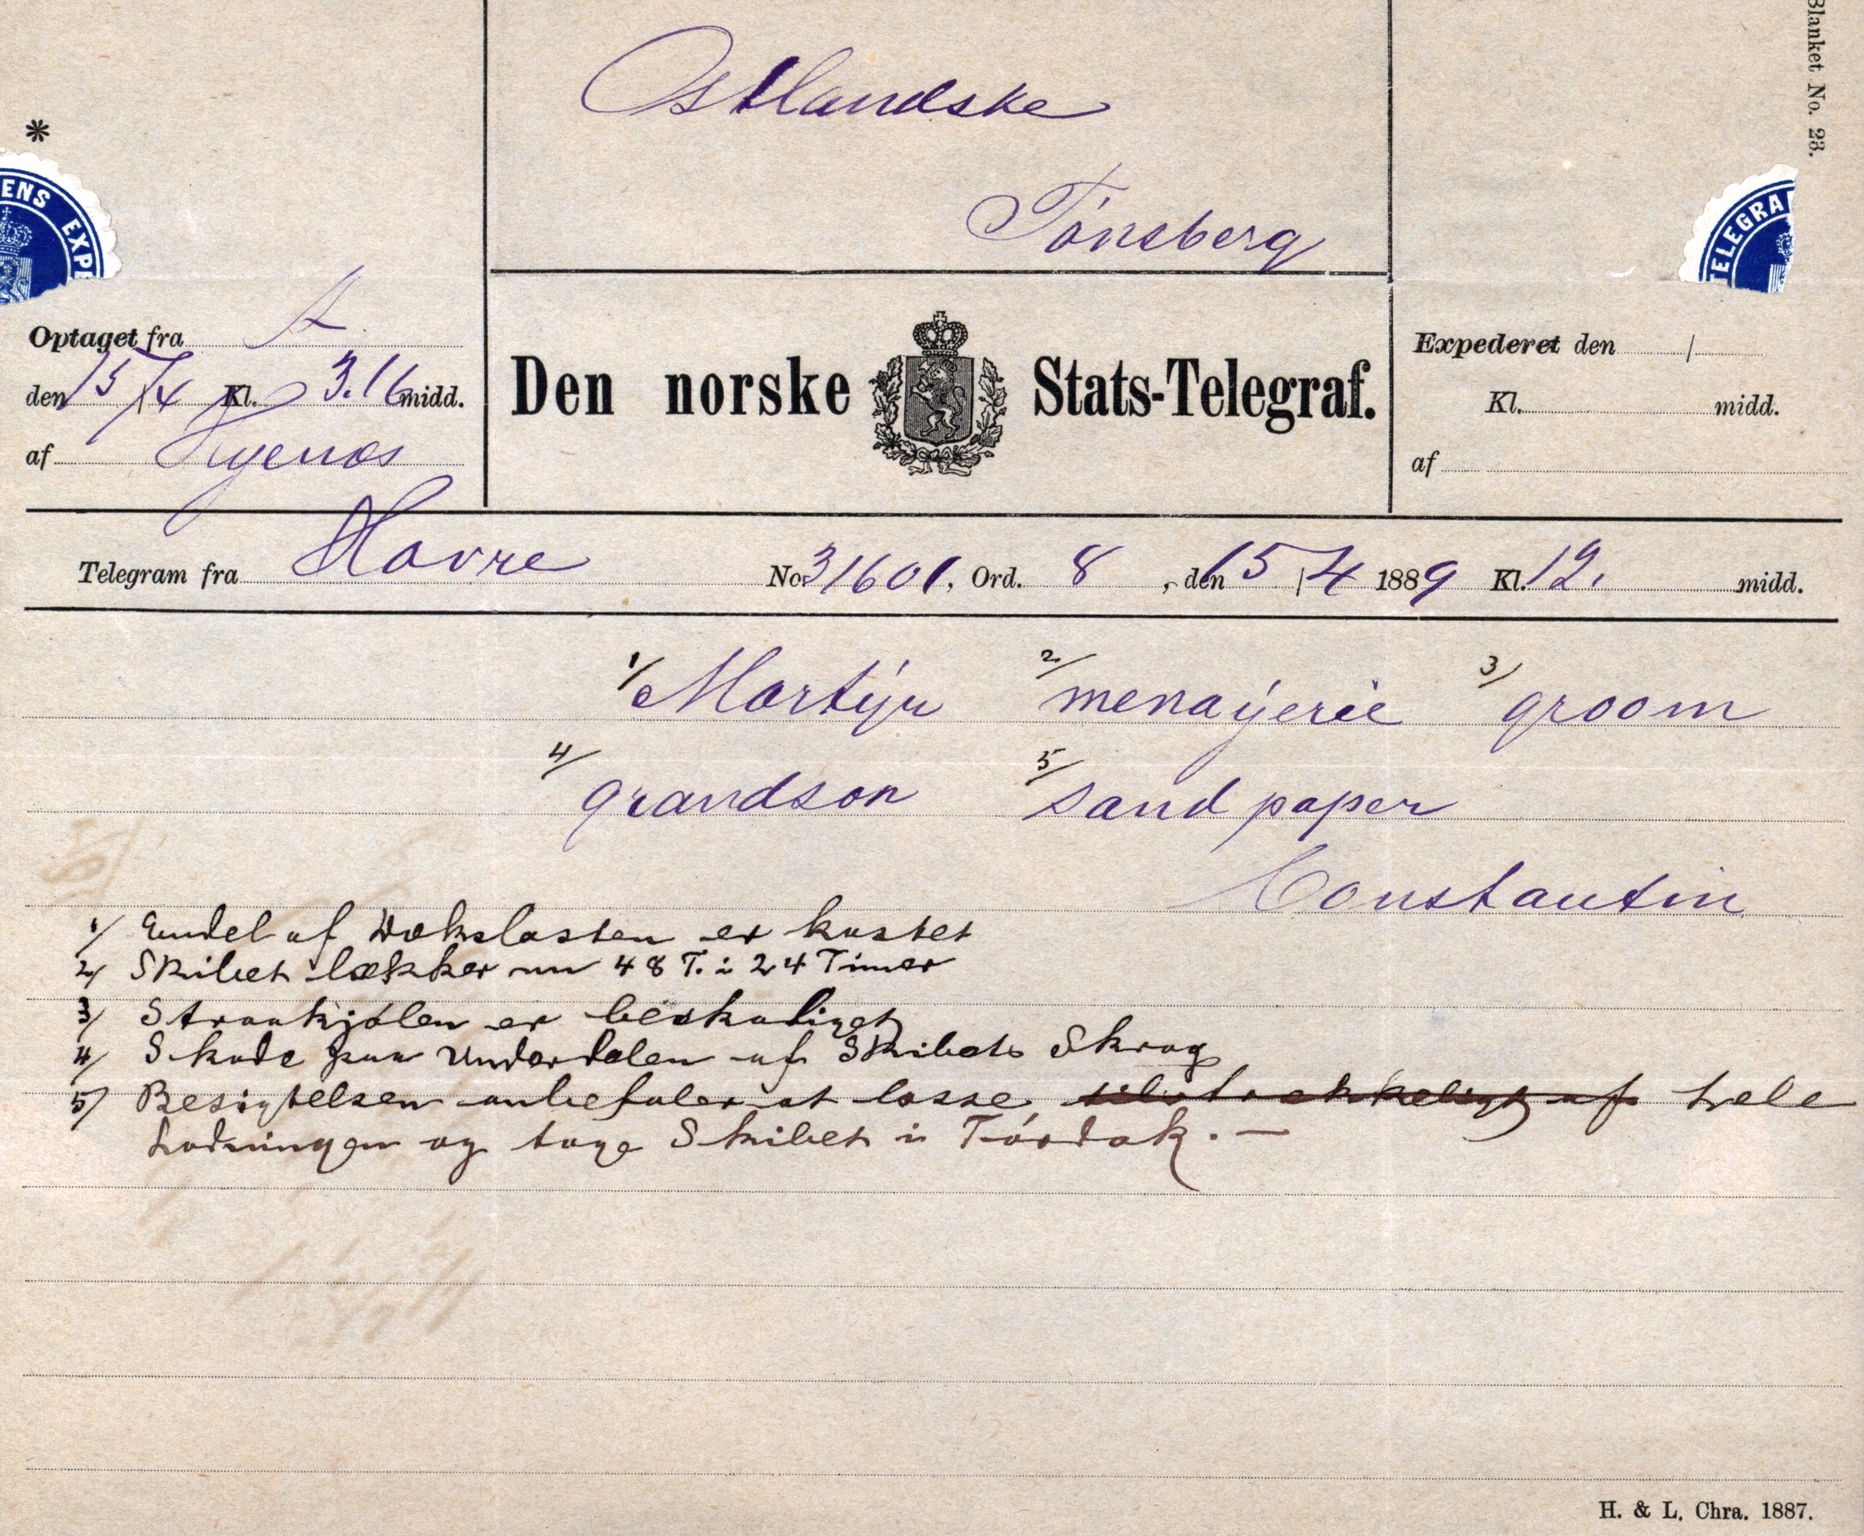 Blanket No. 23.
Østlandske
Tönsberg
*
ENS EXPE
TELEGRA
Optaget fra A
den 15/4 Kl. 3.16 midd.
af
Den norske Stats-Telegraf.
Expederet den /
Kl. midd.
af
Telegram fra Havre No. 31601, Ord. 8, den 15/4 1889 Kl. 12. midd.
1/ Martyr 2/ menagerie 3/ groom
4/ grandson 5/ sand paper
Constantin
1/ Endel af Dækslasten er kastet
2/ Skibet lækker nu 48 T. i 24 Timer
3/ Straakjølen er beskadiget
4/ Skade paa Underdelen af Skibets Skrog
5/ Besigtelsen anbefaler at losse tilstrækkeligt af hele
Ladningen og tage Skibet i Tørdok. —
H. & L. Chra. 1887.